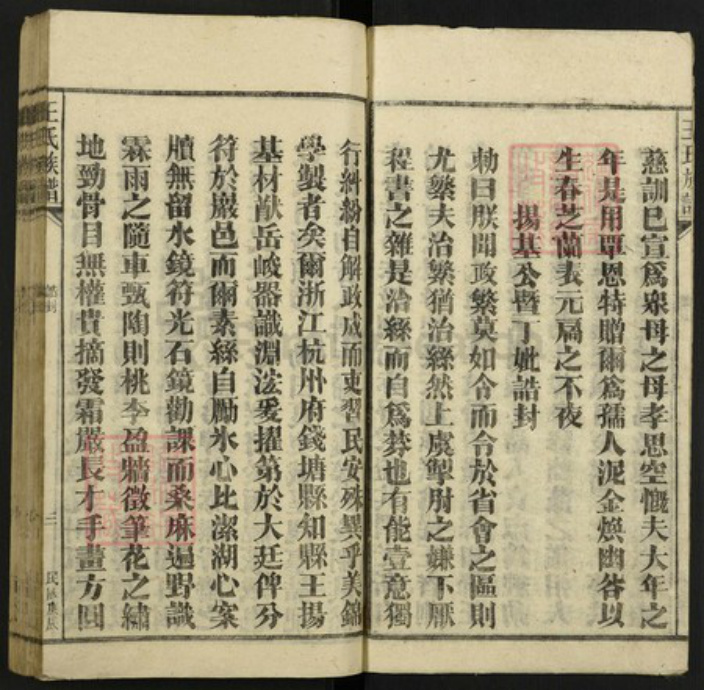 慈訓已宣為衆母之母孝思空慨夫大年之
年是用覃恩特贈爾為孺人泥金煥幽谷以
生春芝蘭表元扃之不夜
揚基公暨丁妣誥封
勅曰朕聞政繁莫如令而令於省會之區則
尤繁夫治繁猶治絲然上虞掣肘之嫌下厭
程書之雜是治絲而自為棼也有能壹意獨
行糾紛自解政成而吏習民安殊異乎美錦
學製者矣爾浙江杭州府錢塘縣知縣王揚
基材猷岳峻器識淵泫爰擢第於大廷俾分
符於巖邑而爾素絲自勵氷心比潔湖心案
牘無留水鏡符光石鏡勸課而桑麻遍野識
霖雨之隨車甄陶則桃李盈牆徵筆花之繡
地勁骨目無權貴摘發霜嚴長才手畫方圓
王氏族譜
三